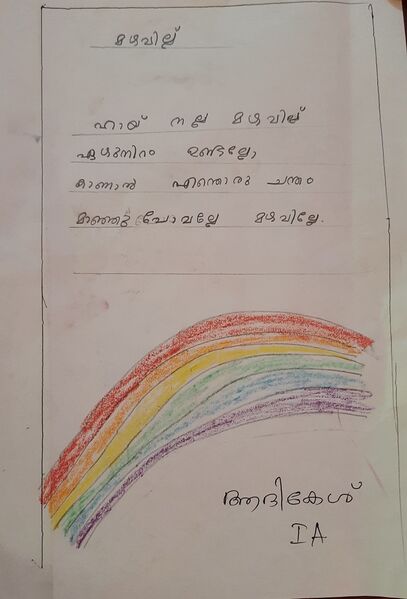 മഴവില്ല്
ഹായ് നല്ല മഴവില്ല്
ഏഴുനിറം ഉണ്ടല്ലോ,
കാണാൻ എന്തൊരു ചന്തം
മാഞ്ഞു പോവല്ലേ മഴവില്ലേ.
ആദികേശ്
I A